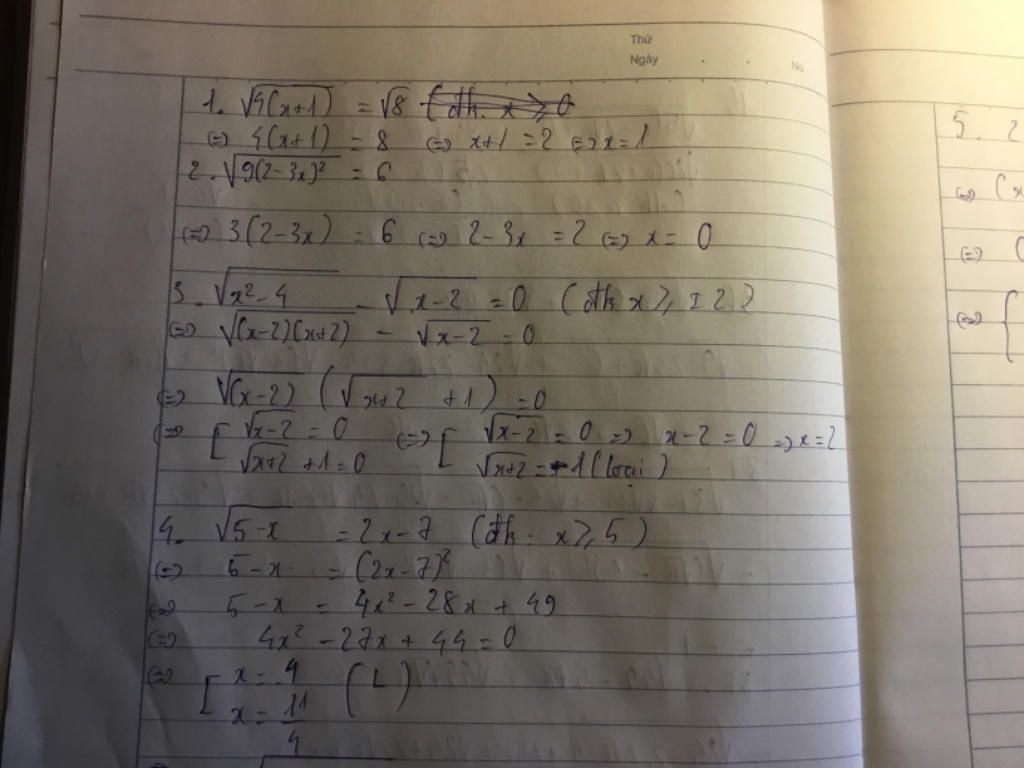 Thứ
Ngày . . No
1. √4(x+1) = √8 (đk. x ⩾ 0
⇔ 4(x+1) = 8 ⇔ x+1 = 2 ⇔ x = 1
2. √9(2-3x)² = 6
⇔ 3(2-3x) = 6 ⇔ 2-3x = 2 ⇔ x = 0
3. √x²-4 - √x-2 = 0 (đk x ⩾ ± 2)
⇔ √(x-2)(x+2) - √x-2 = 0
⇔ √(x-2) (√x+2 + 1) = 0
⇔ [ √x-2 = 0 ⇔ [ √x-2 = 0 ⇒ x-2 = 0 ⇒ x=2
√x+2 + 1 = 0 √x+2 = -1 (loại)
4. √5-x = 2x-7 (đk. x ⩾ 5)
⇔ 5-x = (2x-7)²
⇔ 5-x = 4x² - 28x + 49
⇔ 4x² - 27x + 44 = 0
⇔ [ x = 4 (L)
x = 11/4
5. 2
⇔ (x
⇔
⇔ {